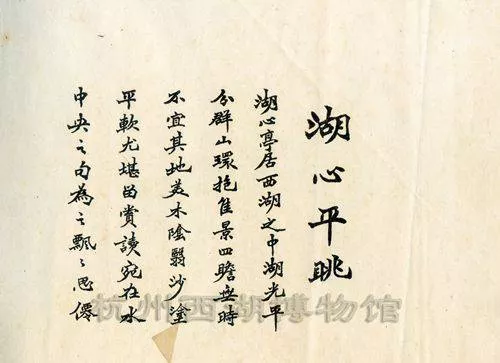 湖心平眺
湖心亭居西湖之中湖光平
分群山環抱佳景四瞻無時
不宜其地美木陰翳沙塗
平軟尤堪留賞讀宛在水
中央之句為之飄々思僊
杭州西湖博物馆